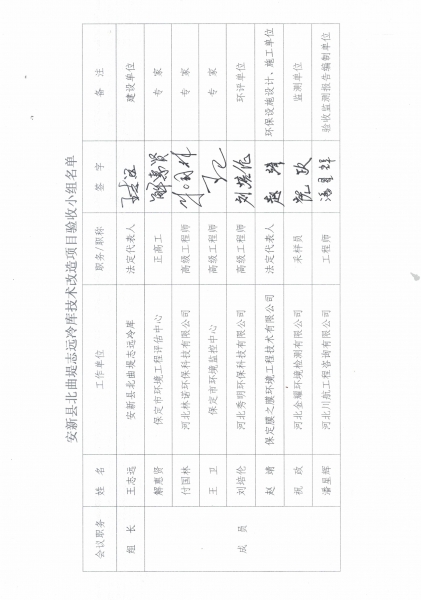 安新县北曲堤志远冷库技术改造项目验收小组名单
会议职务 姓 名 工作单位 职务/职称 签 字 备 注
组 长 王志远 安新县北曲堤志远冷库 法定代表人 王志远 建设单位
成 员 解惠贤 保定市环境工程评估中心 正高工 解惠贤 专 家
付国林 河北林诺环保科技有限公司 高级工程师 付国林 专 家
王 卫 保定市环境监控中心 高级工程师 王卫 专 家
刘培伦 河北秀明环保科技有限公司 高级工程师 刘培伦 环评单位
赵 靖 保定膜之膜环境工程技术有限公司 法定代表人 赵靖 环保设施设计、施工单位
祝 政 河北金耀环境检测有限公司 采样员 祝政 监测单位
潘星辉 河北川航工程咨询有限公司 工程师 潘星辉 验收监测报告编制单位